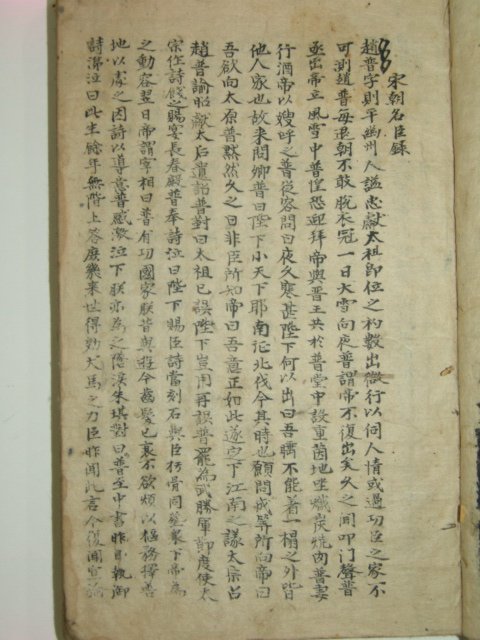 宋朝名臣錄
趙普字則平幽州人謚忠獻太祖即位之初數出微行以伺人情或過功臣之家不
可測趙普每退朝不敢脫衣冠一日大雪向夜普謂帝不復出矣久之聞叩门聲普
亟出帝立風雪中普惶恐迎拜帝與晋王共於普堂中設重茵地坐熾炭燒肉普妻
行酒帝以嫂呼之普從容問曰夜久寒甚陛下何以出曰吾睡不能着一榻之外皆
他人家也故来問卿普曰陛下小天下耶南征北伐今其時也願問成筭所向帝曰
吾欲向太原普黙然久之曰非臣所知帝曰吾意正如此遂定下江南之謀太宗占
趙普諭昭獻太后遺詔普對曰太祖已誤陛下豈用再誤普罷為武勝軍節度使太
宗作詩餞之賜宴長春殿普奉詩泣曰陛下賜臣詩當刻石與臣朽骨同葬泉下帝為
之動容翌日帝謂宰相曰普有功國家朕昔與遊今齒髮已衰不欲煩以樞務擇善
地以處之因詩以導意普感激泣下朕亦為之墮淚朱琪對曰普至中書昨日執御
詩涕泣曰此生餘年無階上答庶幾来世得効犬馬之力臣昨聞此言今復聞宣諭